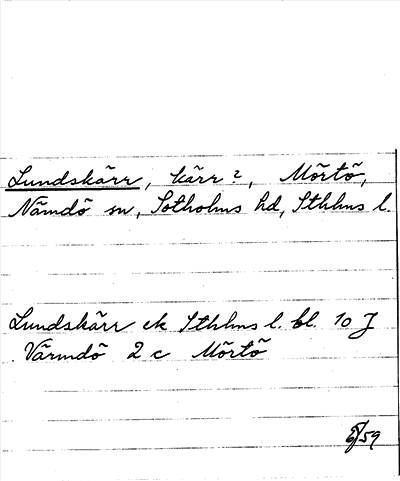 Lundskärr, kärr?, Mörtö,
Nämdö sn, Sotholms hd, Sthlms l.
Lundskärr ek Sthlms l. bl. 10 J
Värmdö 2 c Mörtö
/59